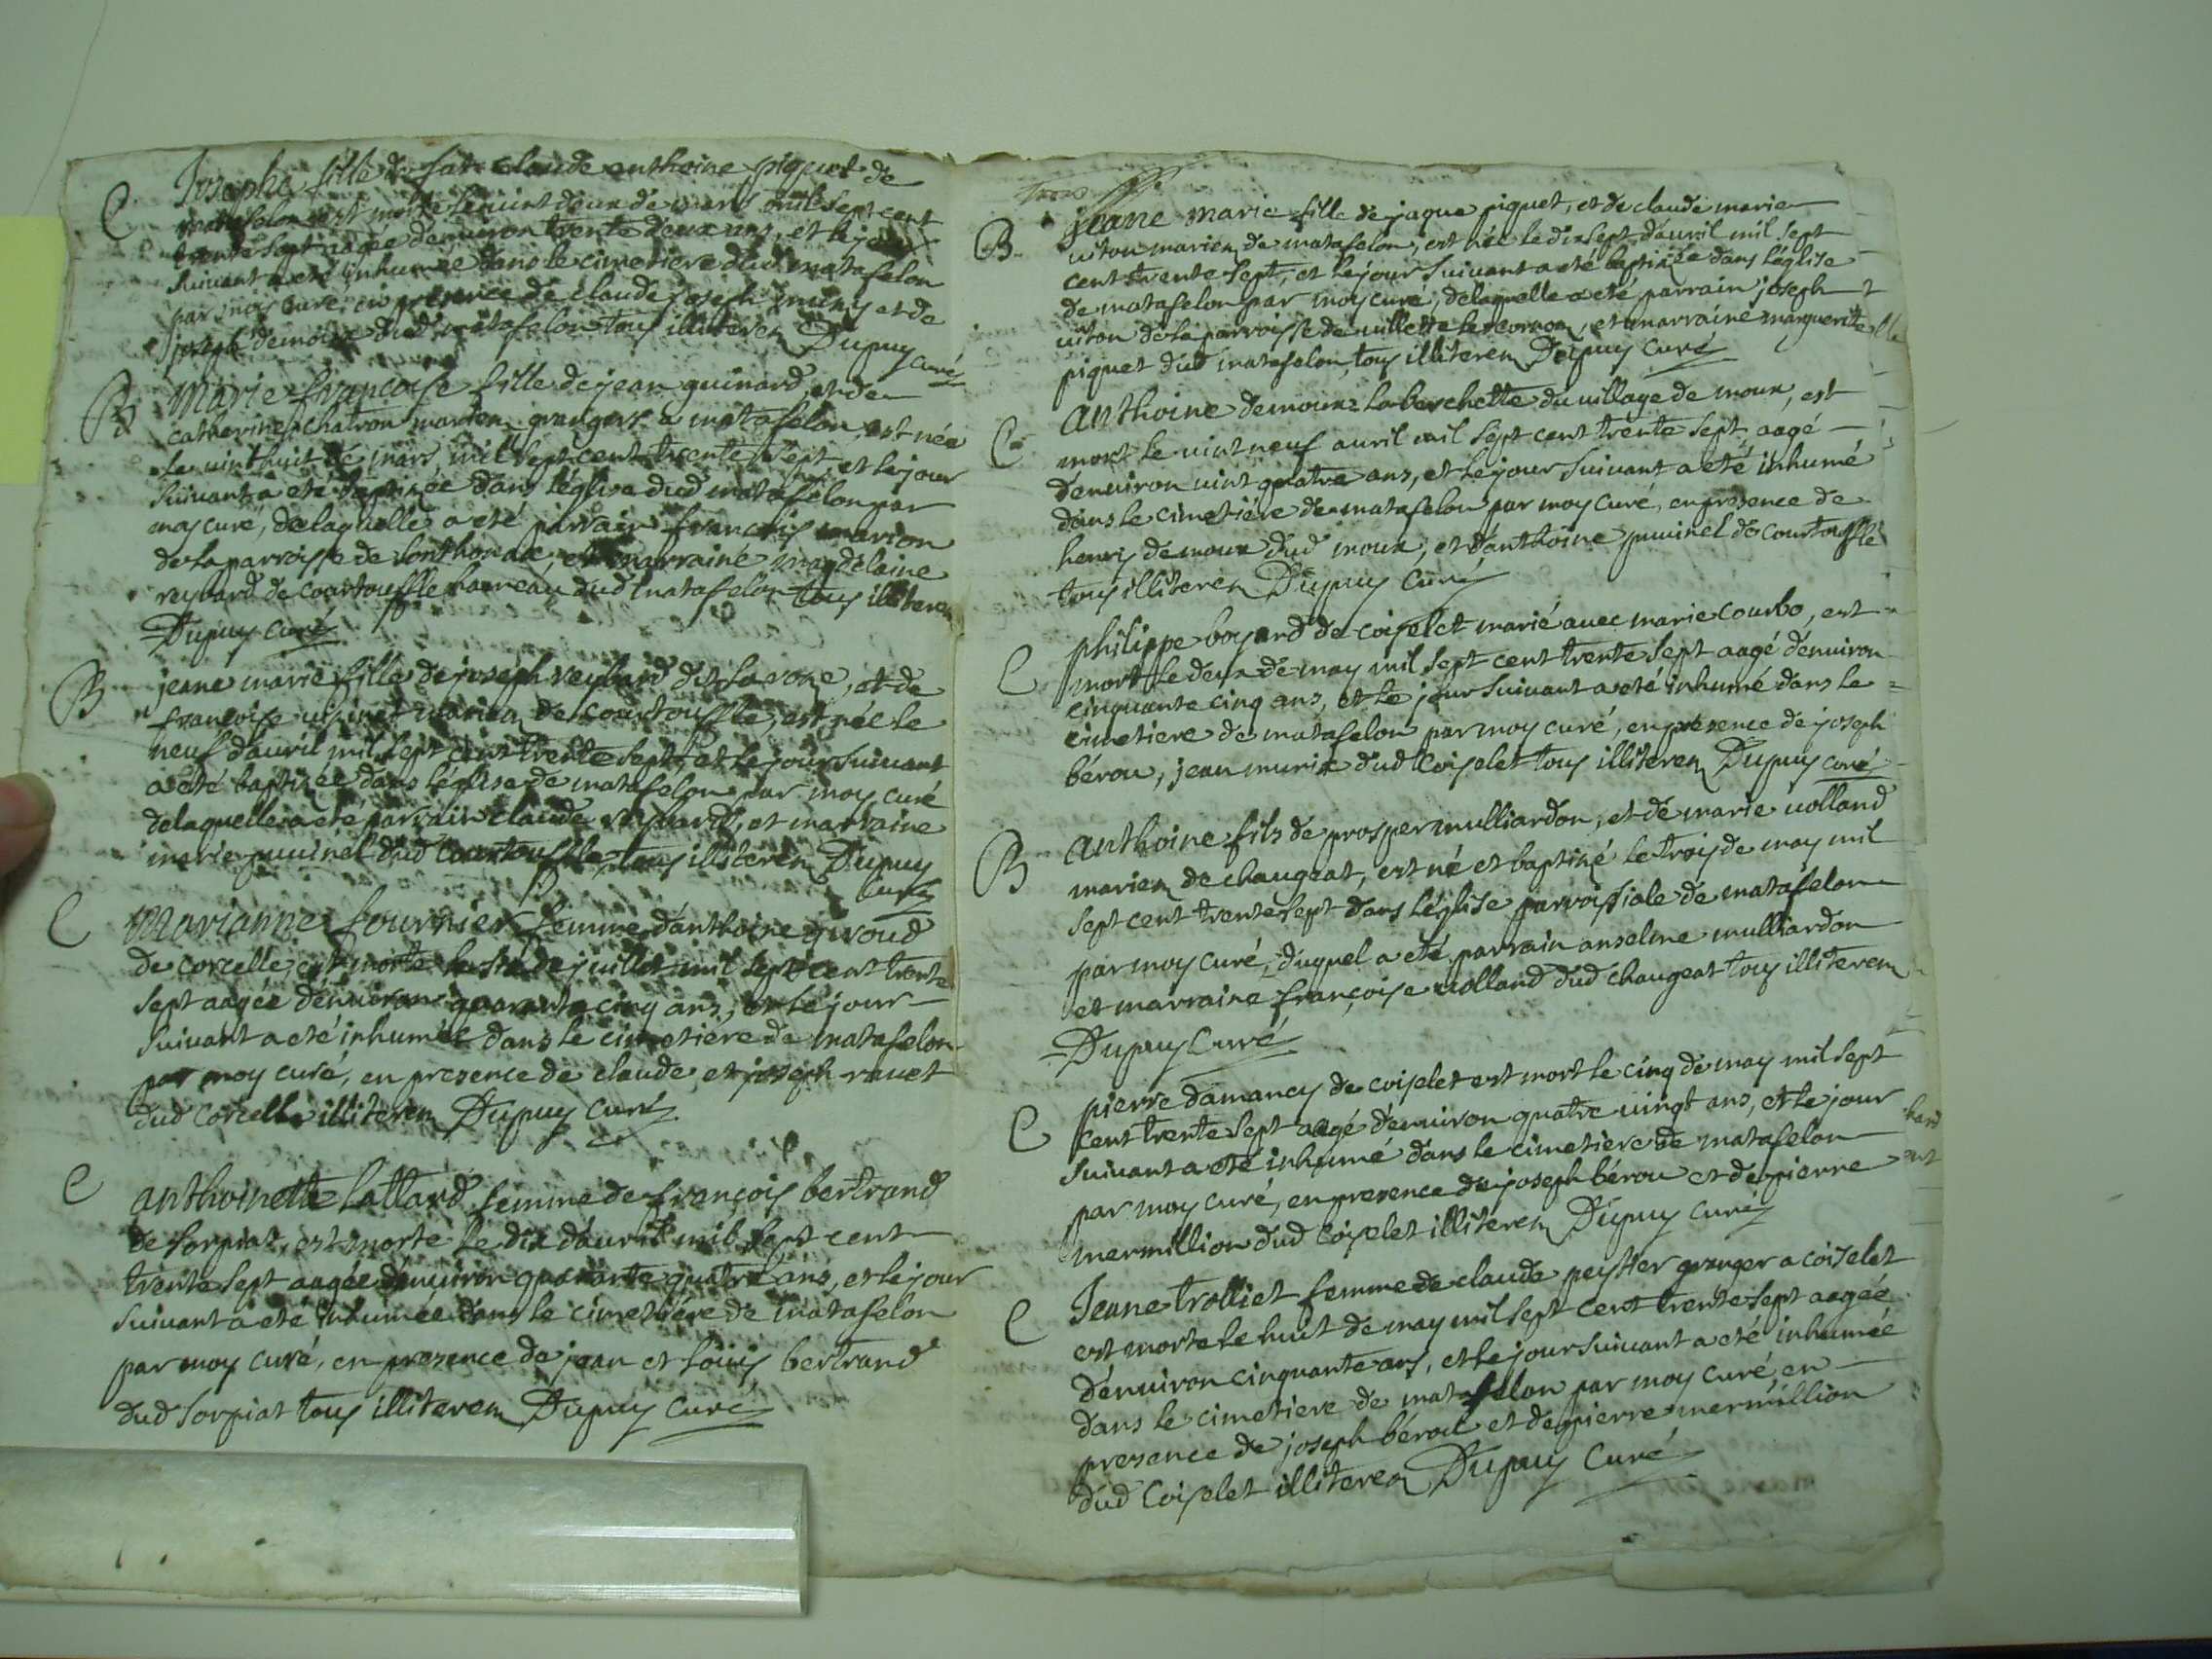 C
Josephe fille de fut claude anthoine piquet de
matafelon est morte le vint deux de mars mil sept cent
trente sept aagée d'environ trente deux ans, et le jour
suivant a eté inhumée dans le cimetiere dud matafelon
par moy curé en presence de claude joseph muny et de
joseph demoux dud matafelon tous illiteren Dupuy
curé
B
Marie françoise fille de jean guinard, et de
catherine chatron marien grangers a matafelon est née
le vint huit de mars mil sept cent trente sept, et le jour
suivant a eté baptizée dans léglise dud matafelon par
moy curé, de laquelle a eté parrain françois marion
de la parroisse de sonthonax, et marraine magdelaine
reybard de courtouffle hameau dud matafelon tous illiteren
Dupuy curé
B
jeane marie fille de joseph reybard dit la roze, et de
françoise marien de courtouffle, est née le
neuf d'avril mil sept cent trente sept, et le jour suivant
a eté baptizée dans léglise de matafelon par moy curé
de laquelle a eté parrain claude reybard, et marraine
marie puvinel dud courtouffle, tous illiteren Dupuy
curé
C
Marianne fournier femme d'anthoine giroud
de corcelle, est morte le six de juillet mil sept cent trente
sept aagée d'environ quarante cinq ans, et le jour
suivant a eté inhumée dans le cimetiére de matafelon
par moy curé, en presence de claude et joseph ravet
dud corcelle illiteren Dupuy curé
C
anthoinette lattard femme de françois bertrand
de sorpiat, est morte le dix d'avril mil sept cent
trente sept aagée d'environ quarante quatre ans, et le jour
suivant a eté inhumée dans le cimetiére de matafelon
par moy curé, en presence de jean et louis bertrand
dud sorpiat tous illiteren Dupuy curé
trois
B
jeane marie fille de jaque piquet, et de claude marie
viton marien de matafelon, est née le dixsept d'avril mil sept
cent trente sept, et le jour suivant a eté baptizée dans léglise
de matafelon par moy curé, de laquelle a eté parrain joseph
viton de la parroisse de villette les cornon, et marraine marguerite
piquet dud matafelon, tous illiteren Dupuy curé
C
anthoine demoux la berchette du village de moux, est
mort le vint neuf avril mil sept cent trente sept, aagé
d'environ vint quatre ans, et le jour suivant a eté inhumé
dans le cimetiére de matafelon par moy curé, en presence de
henris demoux dud moux, et d'anthoine puvinel de courtouffle
tous illiteren Dupuy curé
C
philippe boyard de coiselet marié avec marie courbo, est
mort le deux de may mil sept cent trente sept aagé d'environ
cinquante cinq ans, et le jour suivant a eté inhumé dans le
cimetiere de matafelon par moy curé, en presence de joseph
bérou, jean murix dud Coiselet tous illiteren Dupuy curé
B
anthoine fils de prosper mulliardon, et de marie volland
marien de chaugeat, est né et baptizé le trois de may mil
sept cent trente sept dans léglise parroissiale de matafelon
par moy curé, duquel a eté parrain anselme mulliardon
et marraine françoise volland dud chaugeat tous illiteren
Dupuy Curé
C
pierre damancy de coiselet est mort le cinq de may mil sept
cent trente sept aagé d'environ quatre vingt ans, et le jour
suivant a eté inhumé dans le cimetiere de matafelon
par moy curé, en presence de joseph bérou et de pierre
mermillion dud Coiselet illiteren Dupuy curé
C
Jeane trolliet femme de claude peyster granger a coiselet
est morte le huit de may mil sept cent trente sept aagée
d'environ cinquante ans, et le jour suivant a eté inhumée
dans le cimetiere de matafelon par moy curé, en
presence de joseph bérou et de pierre mermillion
dud Coiselet illiteren Dupuy Curé